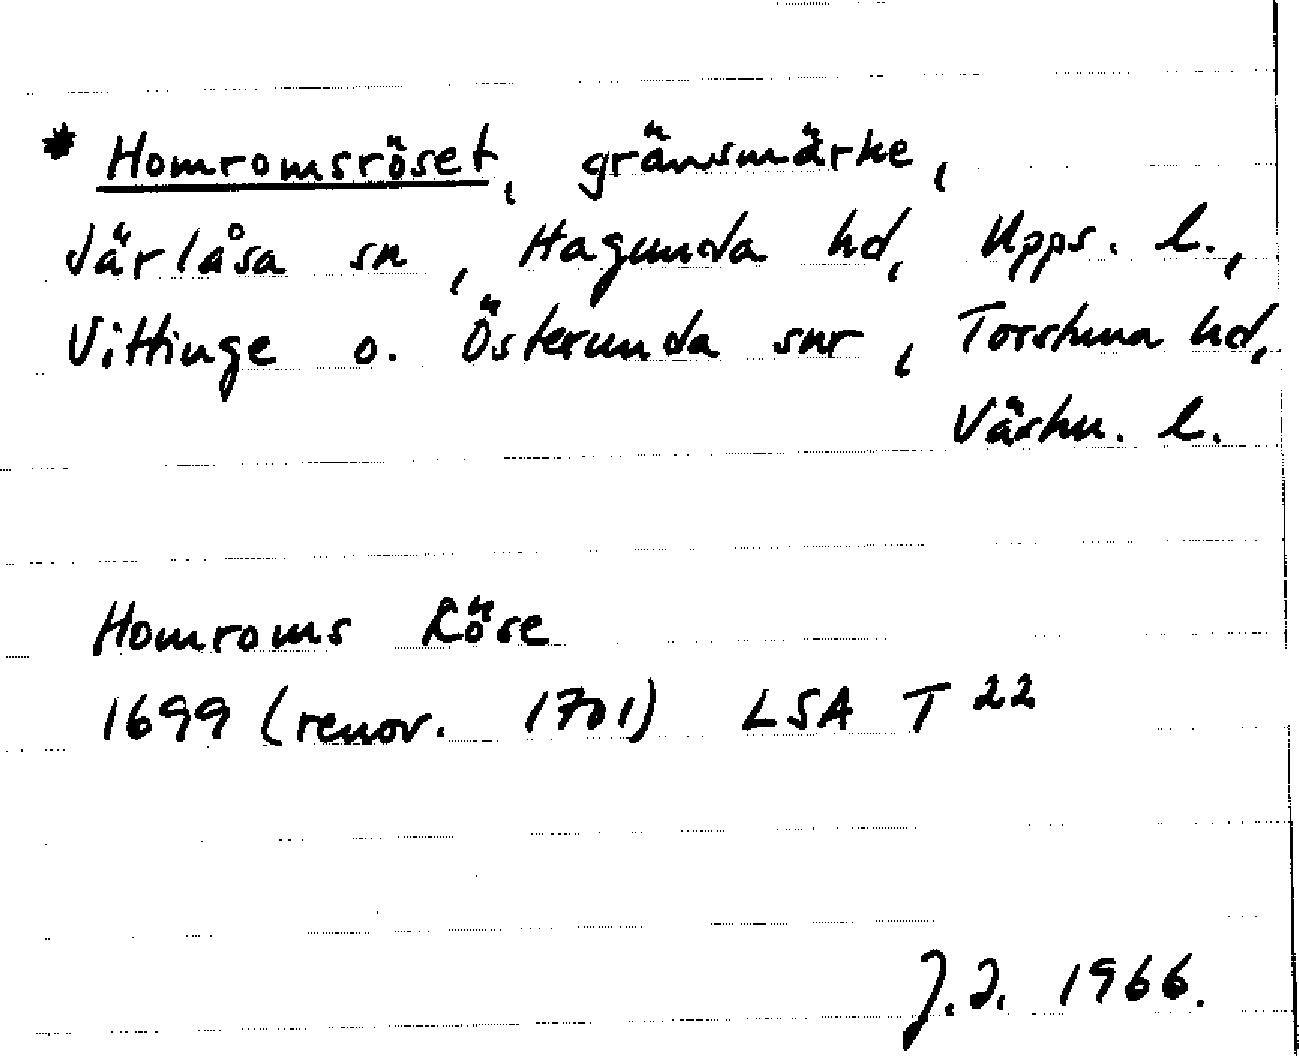 * Homromsröset, gränsmärke,
Järlåsa sn, Hagunda hd, Upps. l.,
Vittinge o. Österunda snr, Torstuna hd,
Västm. l.
Homroms Röse
1699 (renov. 1701) LSA T 22
J.I. 1966.